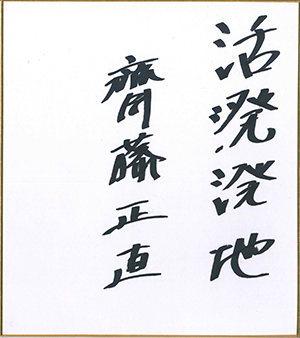 活溌溌地
齋藤正直